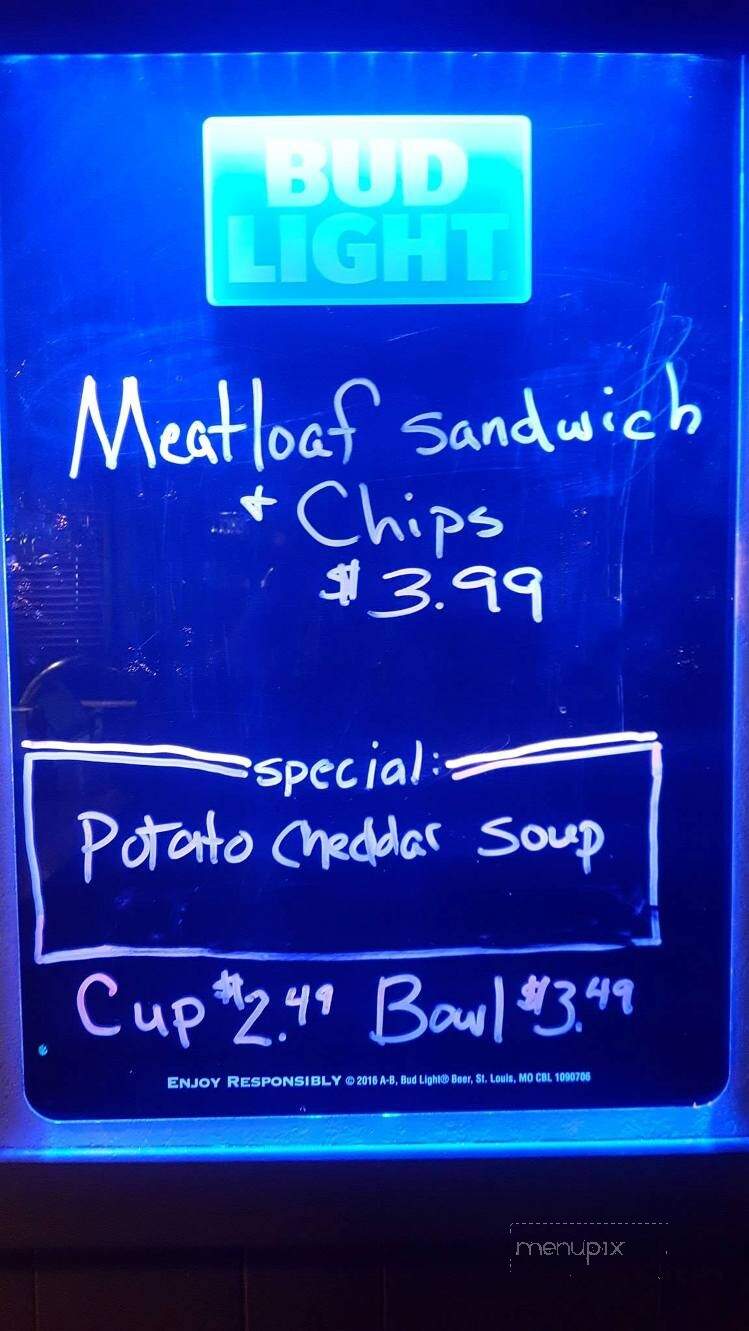 BUD
LIGHT
Meatloaf sandwich
+ Chips
$3.99
special:
Potato Cheddar Soup
Cup $2.49 Bowl $3.49
ENJOY RESPONSIBLY © 2016 A-B, Bud Light® Beer, St. Louis, MO CBL 1090706
menupix